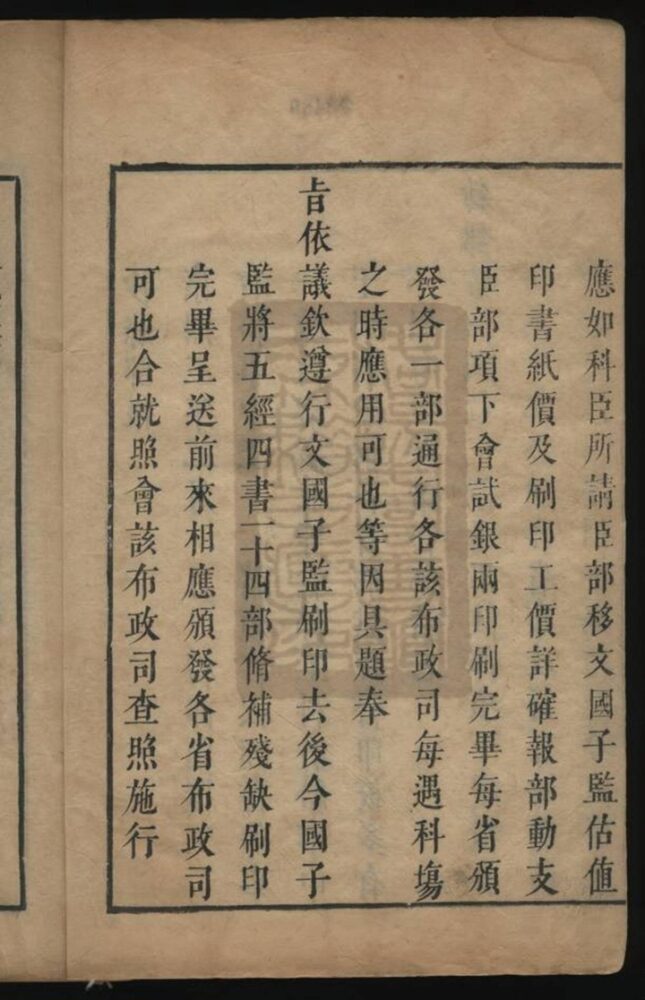 應如科臣所請臣部移文國子監估値
印書紙價及刷印工價詳確報部動支
臣部項下會試銀兩印刷完畢每省頒
發各一部通行各該布政司每遇科塲
之時應用可也等因具題奉
旨依議欽遵行文國子監刷印去後今國子
監將五經四書一十四部脩補殘缺刷印
完畢呈送前來相應頒發各省布政司
可也合就照會該布政司查照施行